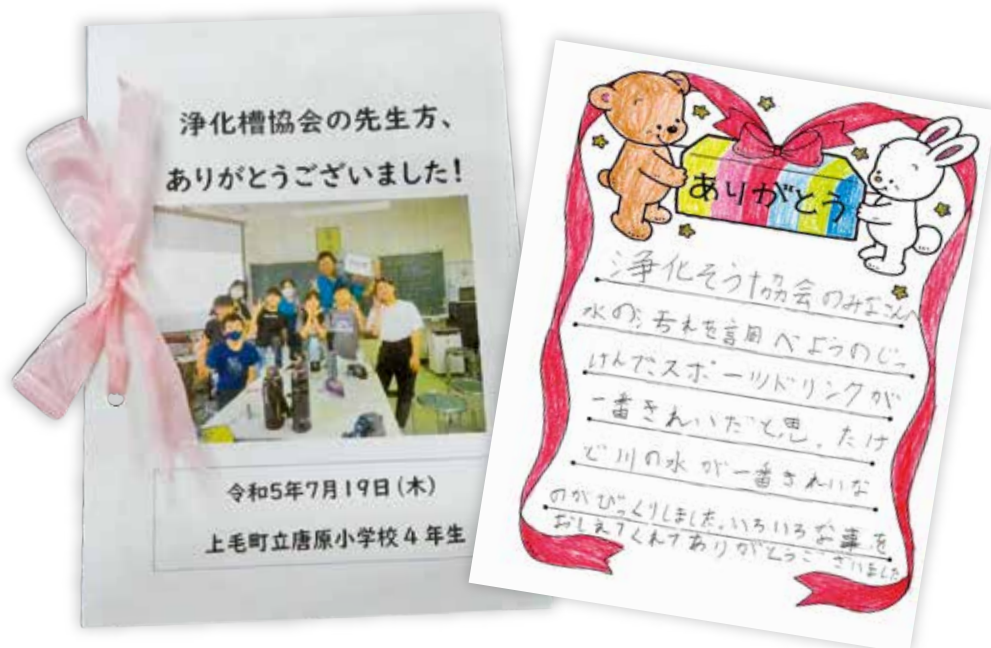 浄化槽協会の先生方、
ありがとうございました!
令和5年7月19日(木)
上毛町立唐原小学校4年生
ありがとう
浄化そう協会のみなさんへ
水の汚れを調べようのじっ
けんでスポーツドリンクが
一番きれいだと思ったけ
ど川の水が一番きれいな
のがびっくりしました。いろいろな事を
おしえてくれてありがとうございました